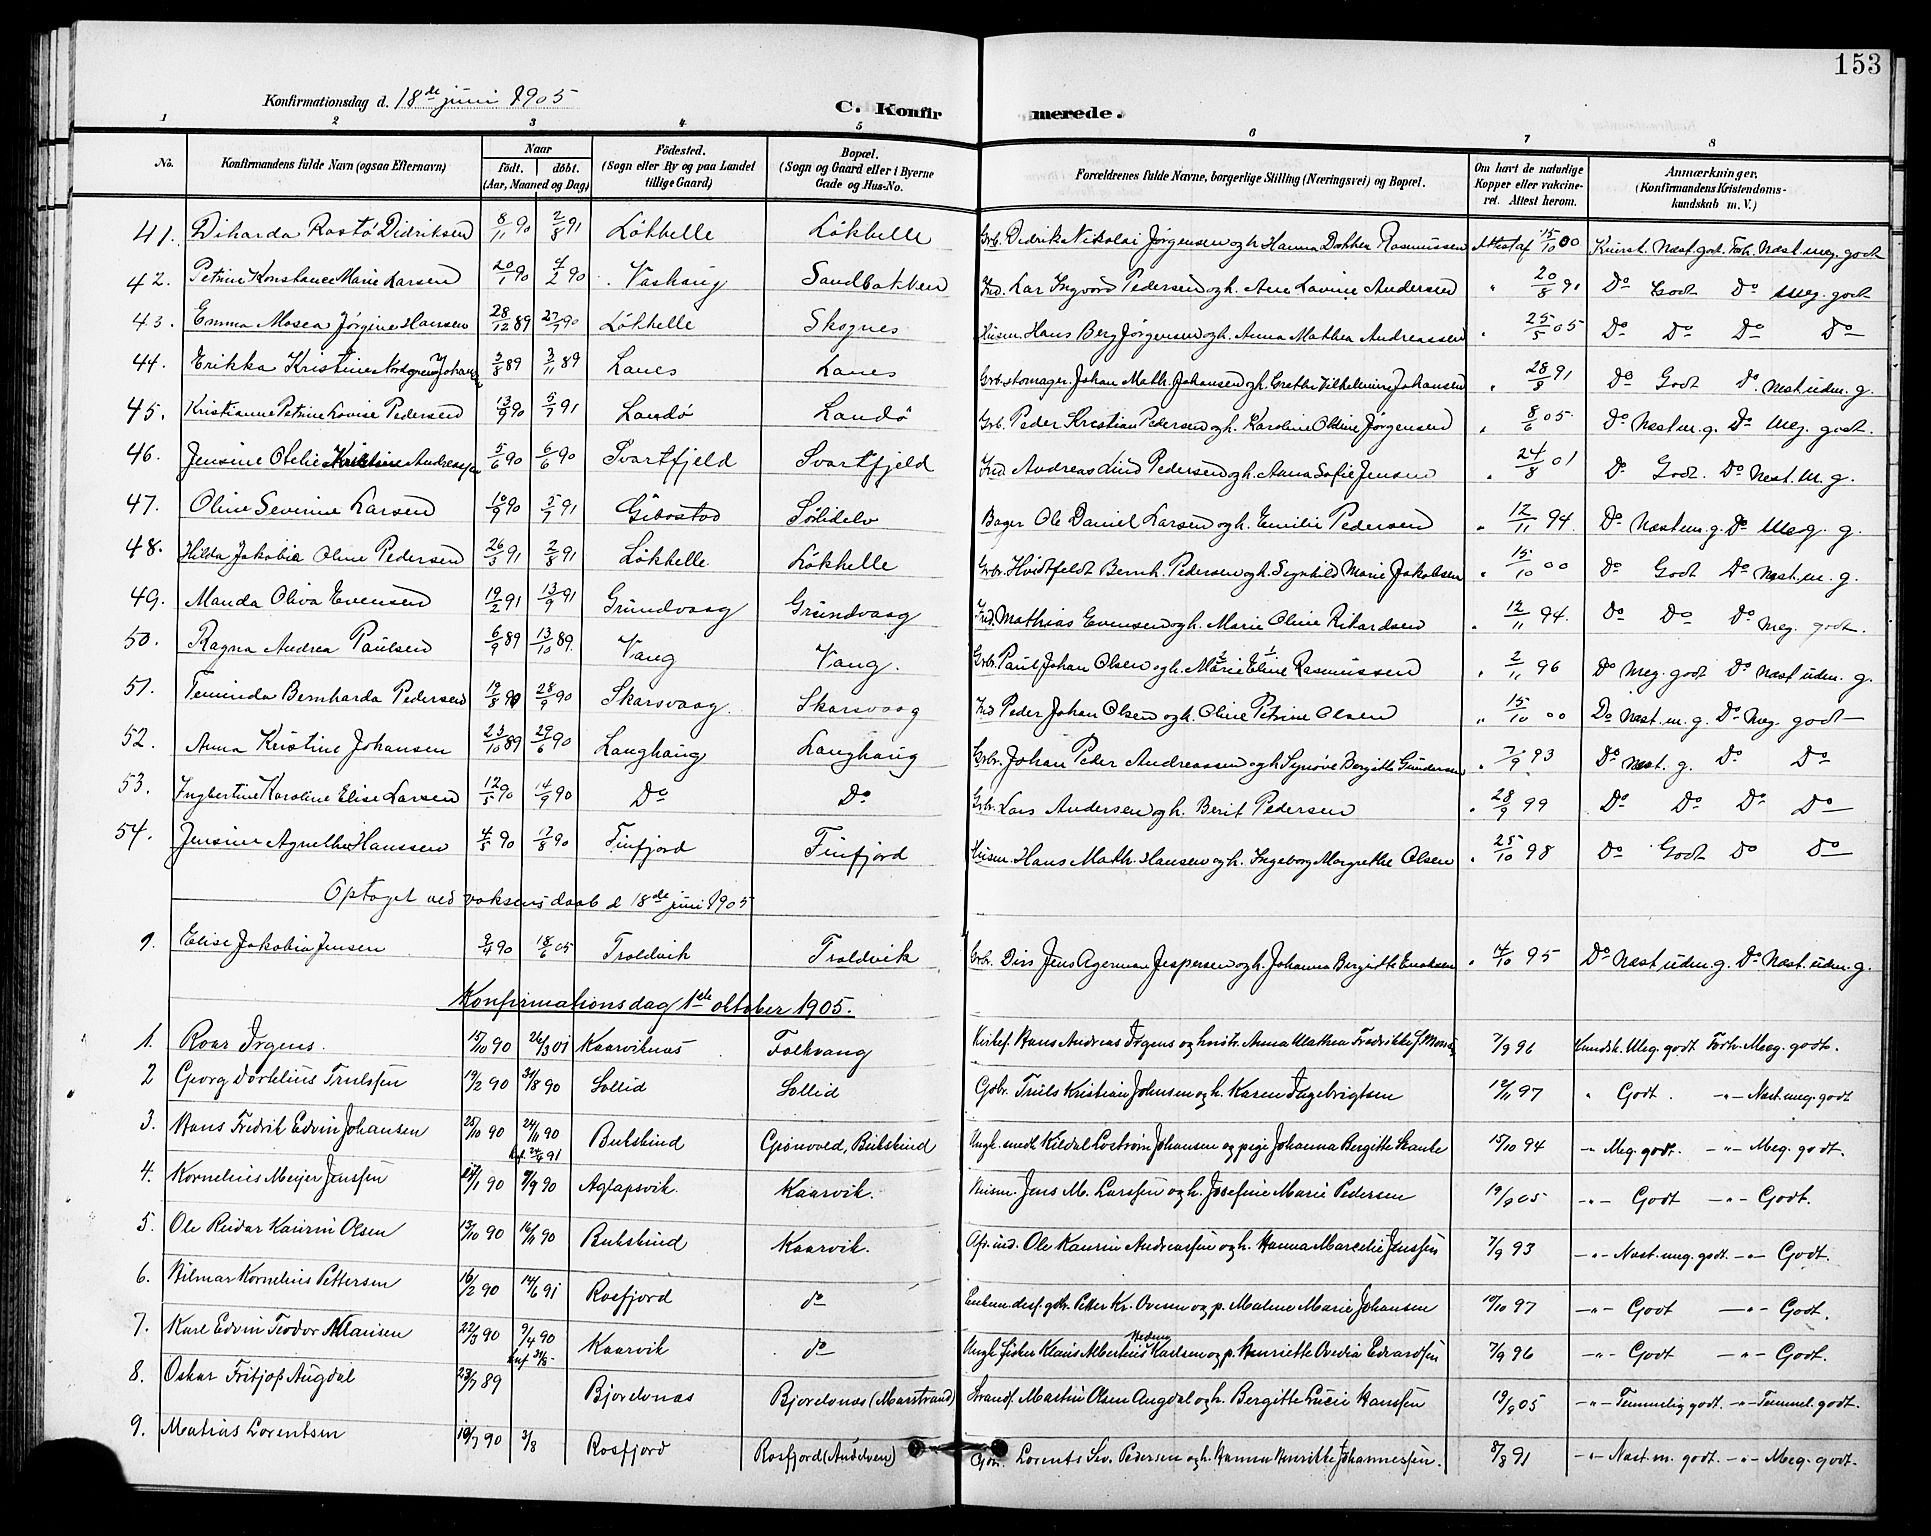 153
Konfirmationsdag d. 18de juni 1905
C. Konfirmerede.
1 2 3 4 5 6 7 8
No. Konfirmandens fulde Navn (ogsaa Efternavn) Naar født. døbt. (Aar, Maaned og Dag) Fødested. (Sogn eller By og paa Landet tillige Gaard) Bopæl. (Sogn og Gaard eller i Byerne Gade og Hus-No. Forældrenes fulde Navne, borgerlige Stilling (Næringsvei) og Bopæl. Om havt de naturlige Kopper eller vakcineret. Attest herom. Anmærkninger. (Konfirmandens Kristendomskundskab m. V.)
41. Dikarda Rastö Didriksen 8/11 90 2/8 91 Løkhelle Løkhelle Grb. Didrik Nikolai Jørgensen og h. Hanna Dorthea Rasmussen Attest af 15/10 00 Kunsk. Næst godt. Forh. Næst meg. godt
42. Petrine Konstance Marie Larsen 20/1 90 4/2 90 Vashaug Sandbakken Ind. Lar Ingvard Pedersen og h. Ane Lovine Andersen " 20/8 91 Do Godt Do Meg. godt
43. Emma Mosea Jørgine Hansen 28/12 89 27/7 90 Løkhelle Skognes Husm. Hans Berg Jørgensen og h. Anna Mathea Andreassen " 25/5 05 Do Do Do Do
44. Erikka Kristine Nordgren Johans 3/8 89 3/11 89 Lanes Lanes Grb. stomager Johan Math. Johansen og h. Grethe Vilhelmine Johansen " 28/9 91 Do Godt Do Næst udm. g.
45. Kristianne Petrine Lovise Pedersen 13/9 90 5/7 91 Landö Landö Grb. Peder Kristian Pedersen og h. Karoline Oldine Jørgensen " 8/6 05 Do Næst m. g. Do Meg. godt.
46. Jensine Otelie Kristine Andreassen 5/6 90 6/6 90 Svartfjeld Svartfjeld Ind. Andreas Lind Pedersen og h. Anna Sofie Jensen " 24/8 01 Do Godt. Do Næst. m. g.
47. Oline Severine Larsen 10/9 90 5/7 91 Gibostad Sollidelv Bager Ole Daniel Larsen og h. Emilie Pedersen " 12/11 94. Do Næst m. g. Do Meg. g.
48. Hilda Jakobia Oline Pedersen 26/3 91 2/8 91 Løkhelle Løkhelle Grb. Hvidtfeldt Bernh. Pedersen og h. Signhild Marie Jakobsen " 15/10 00 Do Godt Do Næst. m. g.
49. Manda Oliva Evensen 19/2 91 13/9 91 Grundvaag Grundvaag Ind. Mathias Evensen og h. Marie Oline Rikardsen " 12/11 94. Do Do Do Meg. godt.
50. Ragna Andrea Paulsen 6/9 89 13/10 89. Vang Vang. Grb. Paul Johan Olsen og h. Marie Eline Rasmussen " 2/11 96 Do Meg. godt Do Næst udm. g.
51. Teminda Bernharda Pedersen 19/8 90 28/9 90 Skarsvaag. Skarsvaag Ind Peder Johan Olsen og h. Oline Petrine Olsen " 15/10 00 Do Næst. m. g. Do Meg. godt
52. Anna Kristine Johansen 23/10 89 29/6 90 Langhaug Langhaug Grbr. Johan Peder Andreassen og h. Synöve Bergitte Gundersen " 7/9 93 Do Næst. g. Do Do
53. Ingbertine Karoline Elise Larsen 12/5 90 14/9 90 Do Do Grb. Lars Andersen og h. Berit Pedersen " 28/9 99 Do Do Do Do
54. Jensine Agnethe Hanssen 4/5 90 17/8 90 Finfjord Finfjord Husm. Hans Math. Hansen og h. Ingeborg Margrethe Olsen " 25/10 98 Do Godt Do Do
Optaget ved voksensdaab d 18de juni 1905
1. Elise Jakobia Jensen 9/4 90 18/6 05 Troldvik Troldvik Grbr. Dirs Jens Agerman Jespersen og h. Johanna Bergitte Enoksen " 14/10 95 Do Næst udm. g. Do Næst. udm. g.
Konfirmationsdag 1ste oktober 1905.
1. Roar Irgens. 15/10 90 26/3 01 Kaarviknæs Folkvang Kirkes. Hans Andreas Irgens og hustr. Anna Mathea Fredrikke f. 7/9 96 Kundsk. Meg. godt Forh. Meg. godt.
2 Georg Dorthelius Trulssen 19/2 90 31/8 90 Sollid Sollid Gbr. Truls Kristian Johnsen og h. Karen Ingebrigtsen 12/11 97 " Godt. -"- Næst. meg. godt
3. Hans Fredrik Edvin Johansen 25/10 90 24/11 90 Bukskind Grönvold, Bukskind Ungk. smedk. Kildal Lostrøm Johansen og pige Johanna Bergitte Skanke 15/10 94 -"- Meg. godt. -"- Meg. godt.
4. Kornelius Meyer Jenssen 24/1 90 7/9 90 Aglapsvik. Kaarvik. Husm. Jens M. Larssen og h. Josefine Marie Pedersen 19/9 05 -"- Godt -"- Godt.
5. Ole Reidar Kaurin Olsen 13/10 90 16/11 90 Bukskind Kaarvik. Ole Kaurin Andreassen og h. Hanna Marcelie Jenssen 7/9 93 -"- Næst. meg. godt. -"- Godt.
6. Hilmar Kornelius Pettersen 16/2 90 14/6 91 Rosfjord do Petter Kr. Ovesen og p. Malene Marie Johansen 10/10 97 -"- Godt -"- Godt.
7. Karl Edvin Teodor Klausen 22/3 90 9/4 90 Kaarvik do Ungk. fisker Klaus Albertius Hedvig Karlsen og p. Henriette Ovedia Edvardsen 7/9 96 -"- Godt -"- Godt.
8. Oskar Fritjof Augdal 23/7 89 Bjorelvnæs Bjorelvnæs (Marstrand) Strands. Martin Olsen Augdal og h. Bergitte Lucie Hanssen 19/9 05 -"- Temmelig godt. -"- Temmel. godt.
9. Matias Lorentsen 10/7 90 3/8 Rosfjord Rosfjord (Andelven) Gbr. Lorents Sev. Pedersen og h. Hanna Henritte Johannessen. 8/8 91 -"- Næst. m. godt. -"- Meg. godt.